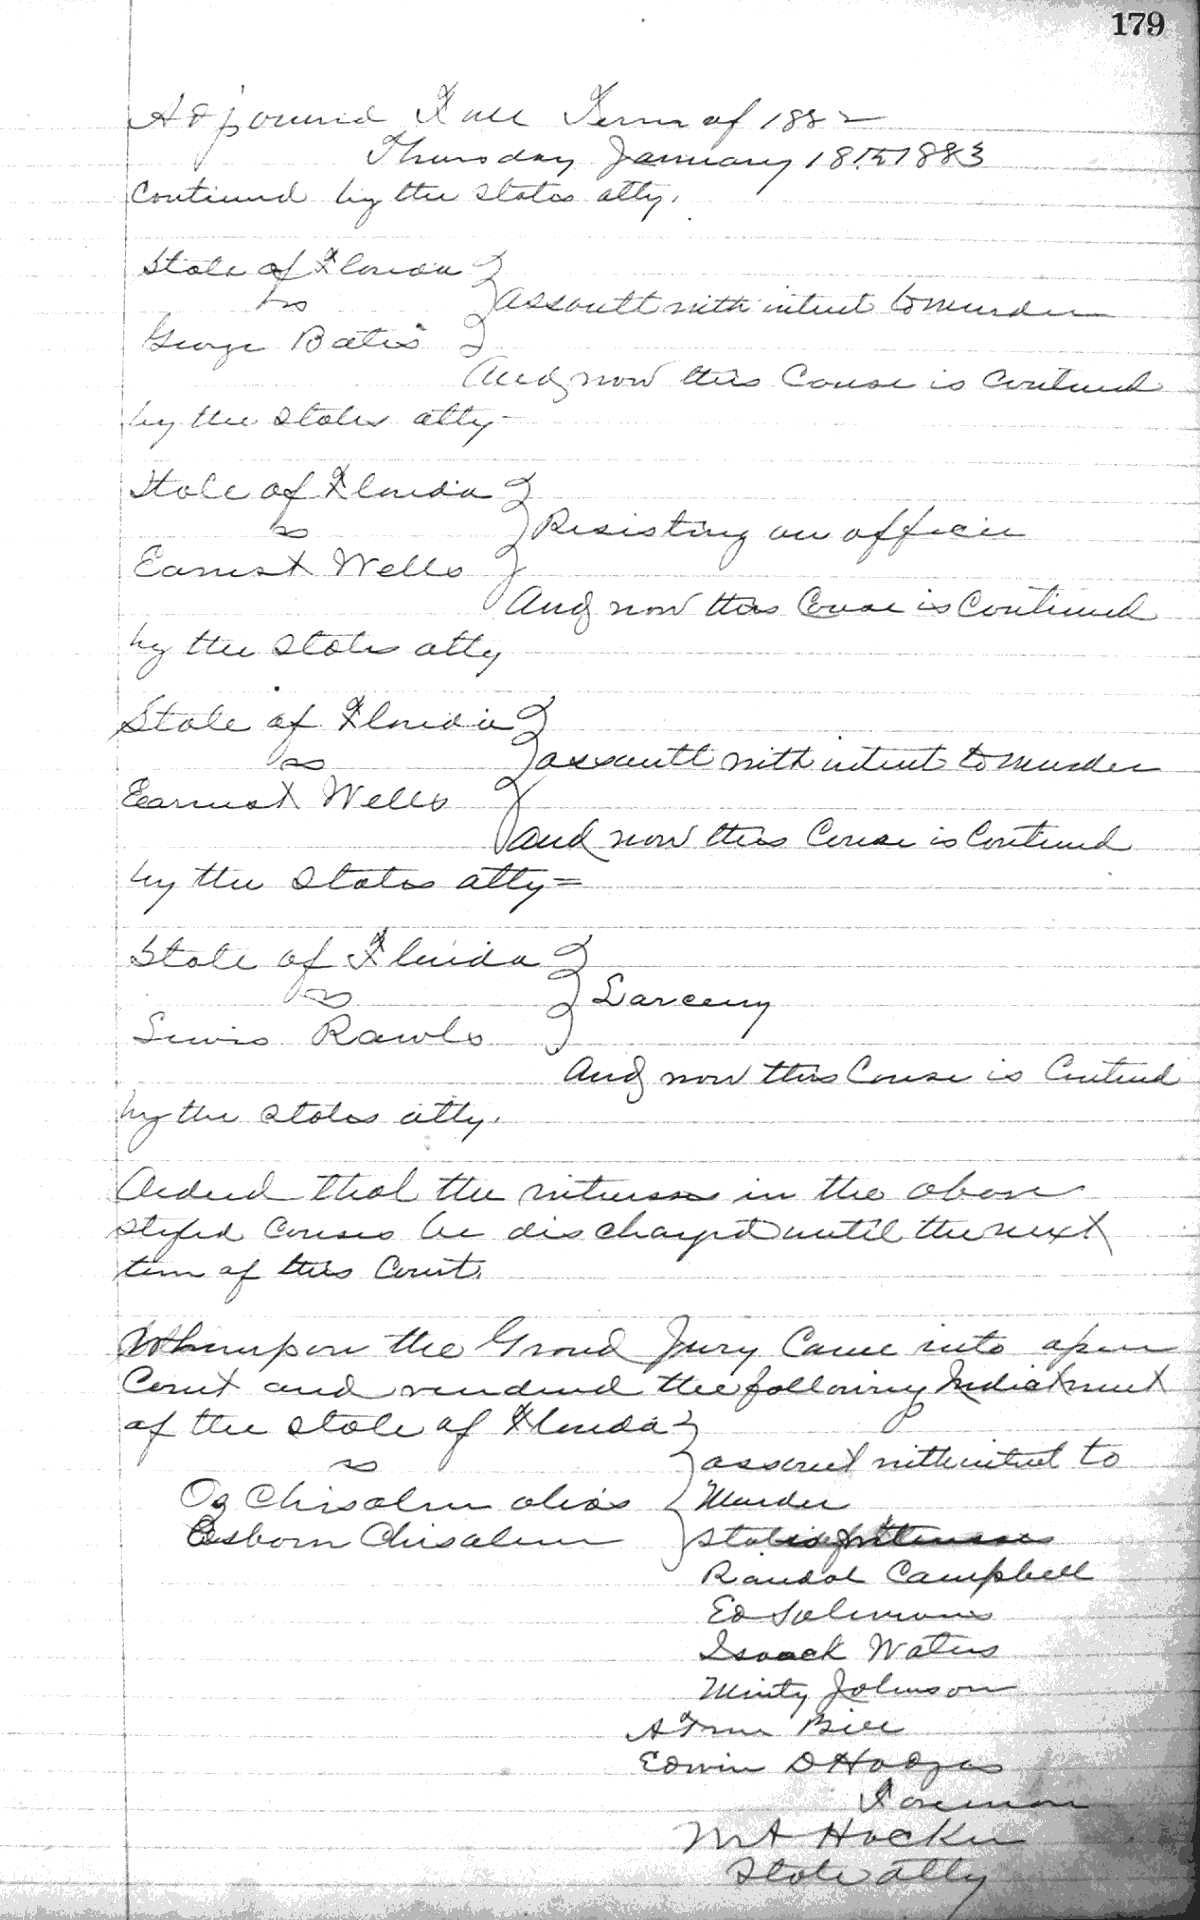 179
Adjourned Fall Term of 1882
Thursday January 18th 1883
Continued by the States atty.
State of Florida
vs
assault with intent to murder
George Bates
And now this Cause is Continued
by the States atty-
State of Florida
vs
Resisting an officer
Earnest Wells
And now this Cause is Continued
by the States atty
State of Florida
vs
assault with intent to murder
Earnest Wells
and now this Cause is Continued
by the States atty=
State of Florida
vs
Larceny
Lewis Rawls
And now this Cause is Continued
by the States atty.
Ordered that the witnesses in the above
styled Causes be discharged until the next
term of this Court.
Whereupon the Grand Jury Came into open
Court and rendered the following Indictment
of the State of Florida
vs
assault with intent to
Oz Chisolm alias
Murder
Osborn Chisolm
States Witnesses
Randol Campbell
Ed Solomons
Isaack Waters
Minty Johnson
A True Bill
Edwin D Hodges
Foreman
Hocker
State atty